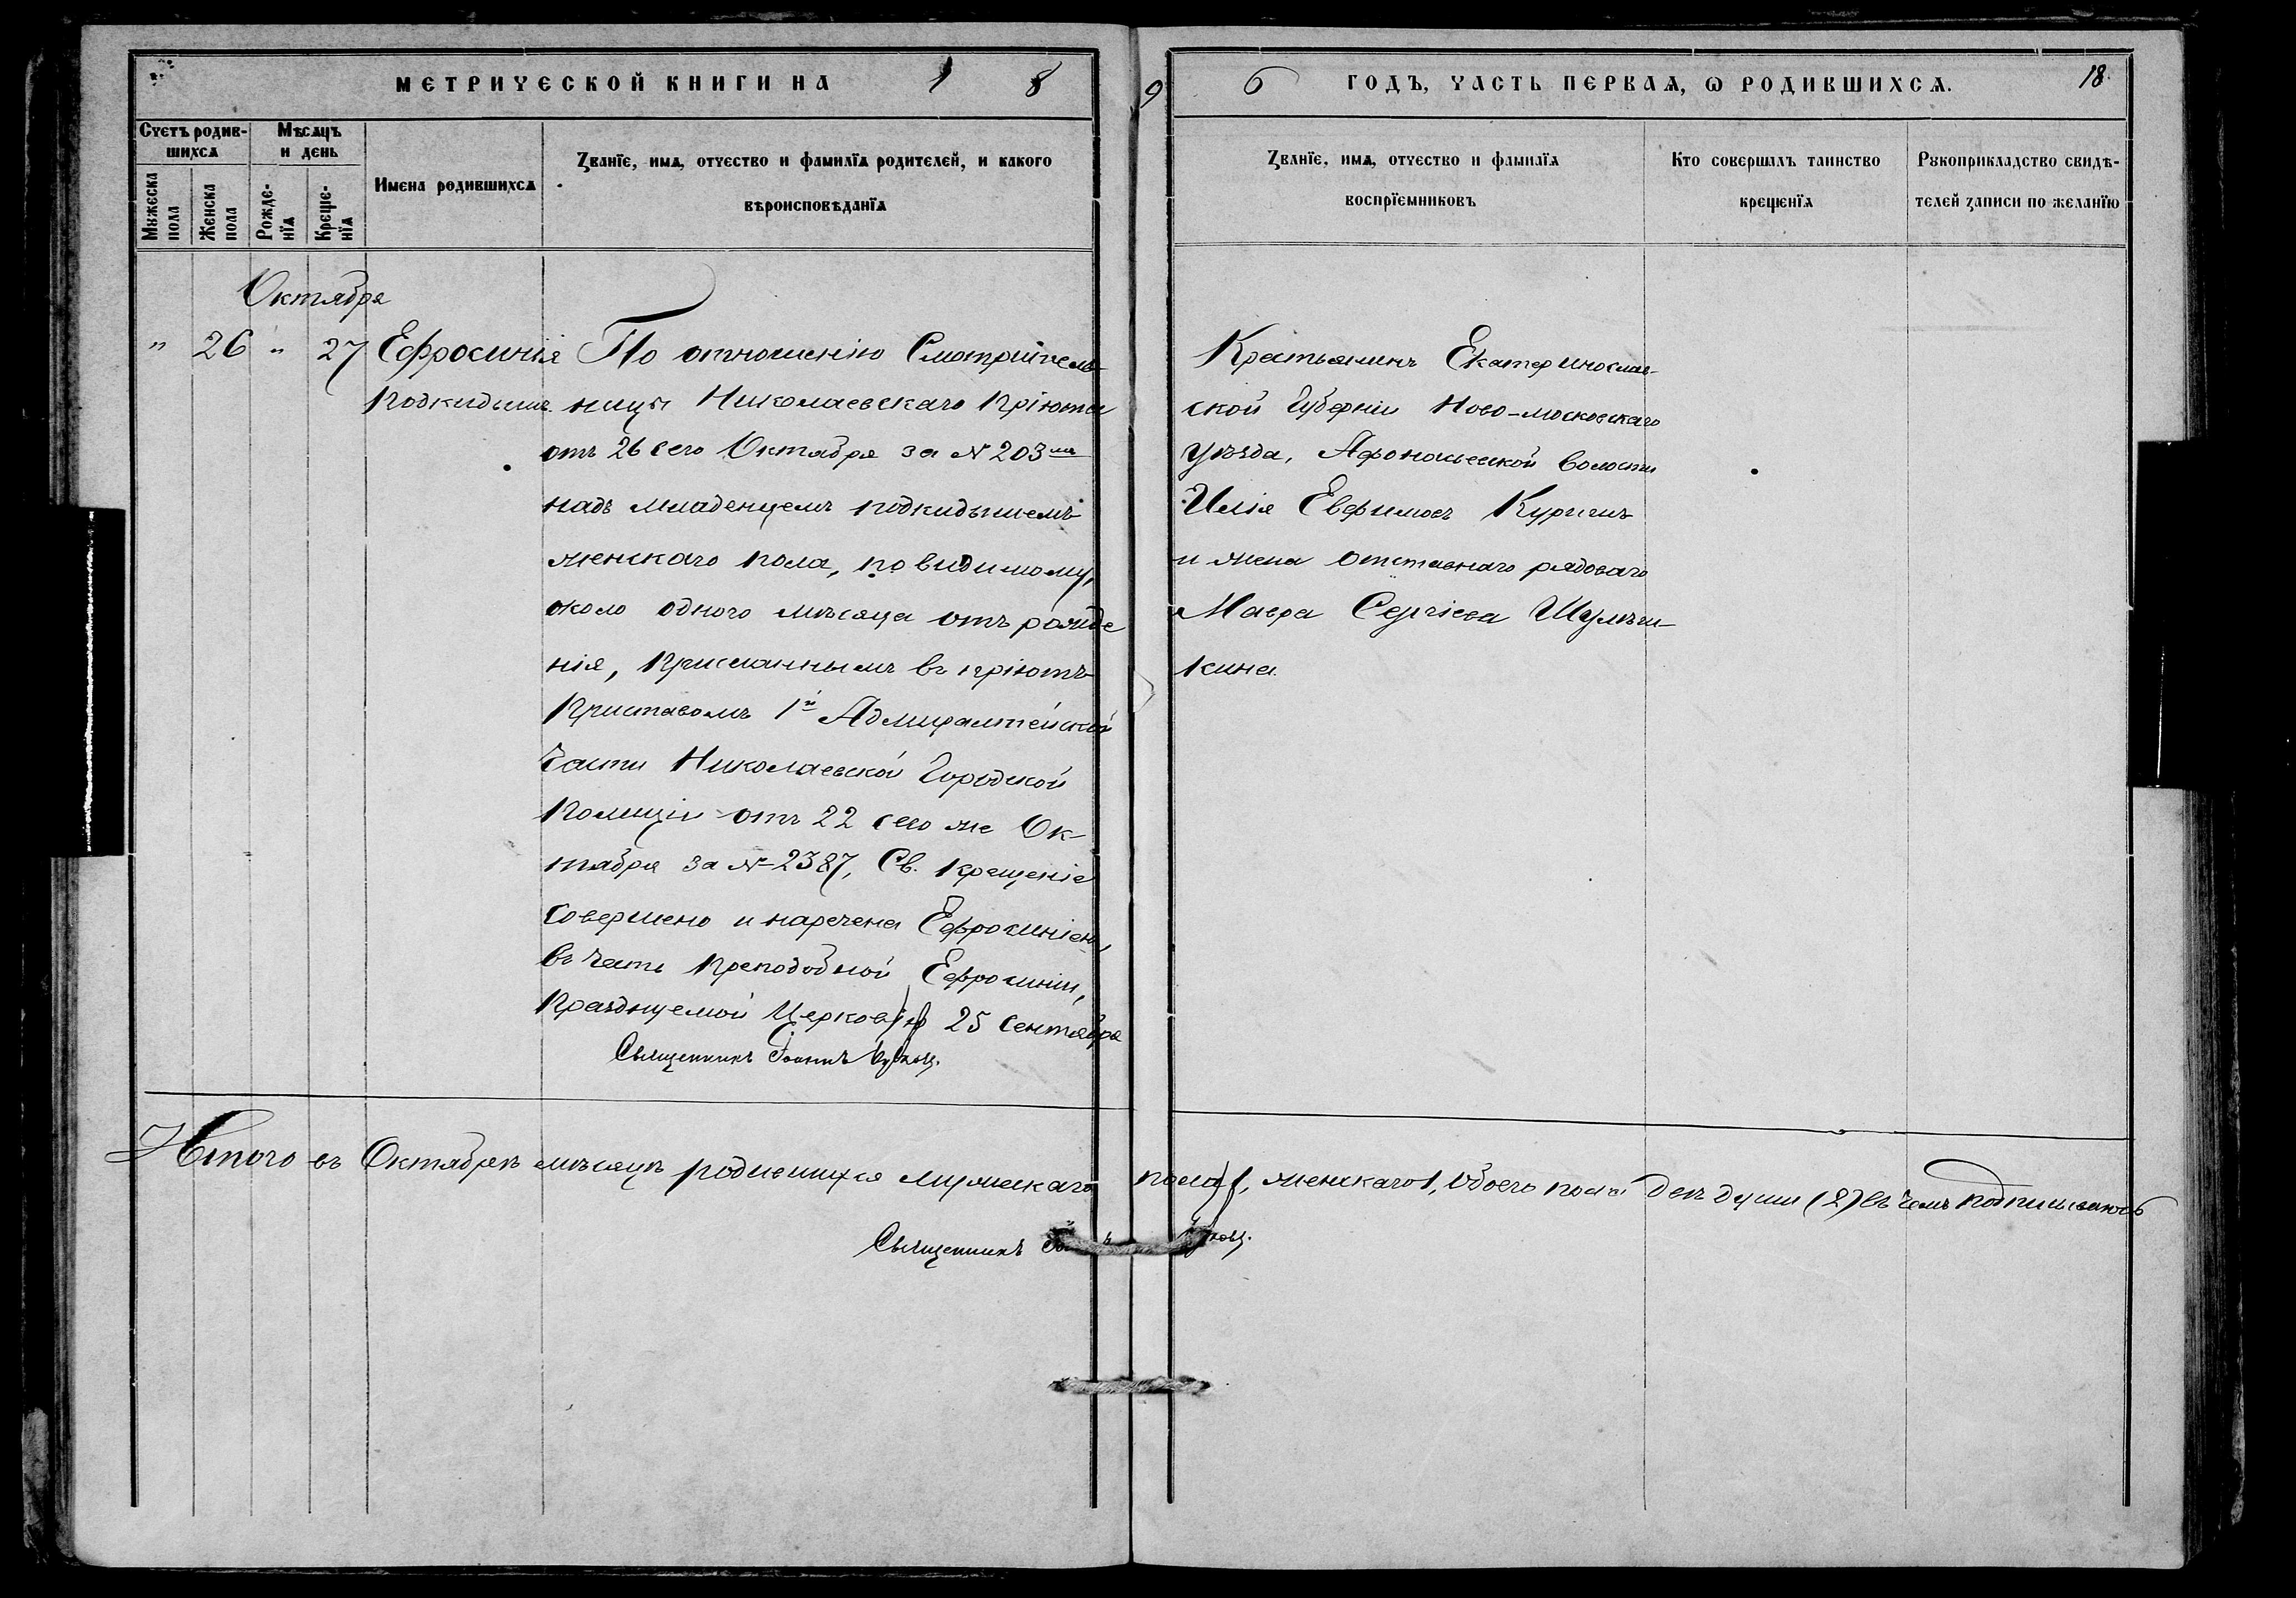 МЕТРИЧЕСКОЙ КНИГИ НА 1 8 9 6 ГОДЪ, ЧАСТЬ ПЕРВАѦ, Ѡ РОДИВШИХСѦ. 18
Счетъ родив-
шихсѧ
Мꙋжеска
пола
Женска
пола
Мѣсѧцъ
и день
Рожде-
нїѧ
Креще-
нїѧ
Имена родившихсѧ
Званїе, имѧ, отчество и фамилїѧ родителей, и какого
вѣроисповѣданїѧ
Званїе, имѧ, отчество и фамилїѧ
воспрїемниковъ
Кто совершалъ таинство
крещенїѧ
Рꙋкоприкладство свидѣ-
телей записи по желанїю
Октября
" 26 " 27
Ефросинія
Подкидышъ.
По отношенію Смотритель-
ницы Николаевскаго Пріюта
отъ 26 сего Октября за № 203
надъ младенцемъ подкидышемъ
женскаго пола, по видимому,
около одного мѣсяца отъ рожде
нія, присланнымъ въ пріютъ
Приставомъ 1й Адмиралтейской
части Николаевской Городской
Полиціи отъ 22 сего же Ок-
тября за № 2387, Св. Крещеніе
совершено и наречена Ефросиніею,
въ честь Преподобной Ефросиніи,
Празднуемой Церковію 25 Сентября
Священникъ Іоаннъ
Крестьянинъ Екатеринослав-
ской Губерніи Ново-московскаго
уѣзда, волости
Илія Евфимовъ
и жена отставнаго рядоваго
Мавра Сергіева
кина.
Итого въ Октябрѣ мѣсяцѣ родившихся мужескаго пола 1, женскаго 1, обоего пола двѣ души (2) въ чемъ подписываюсь
Священникъ